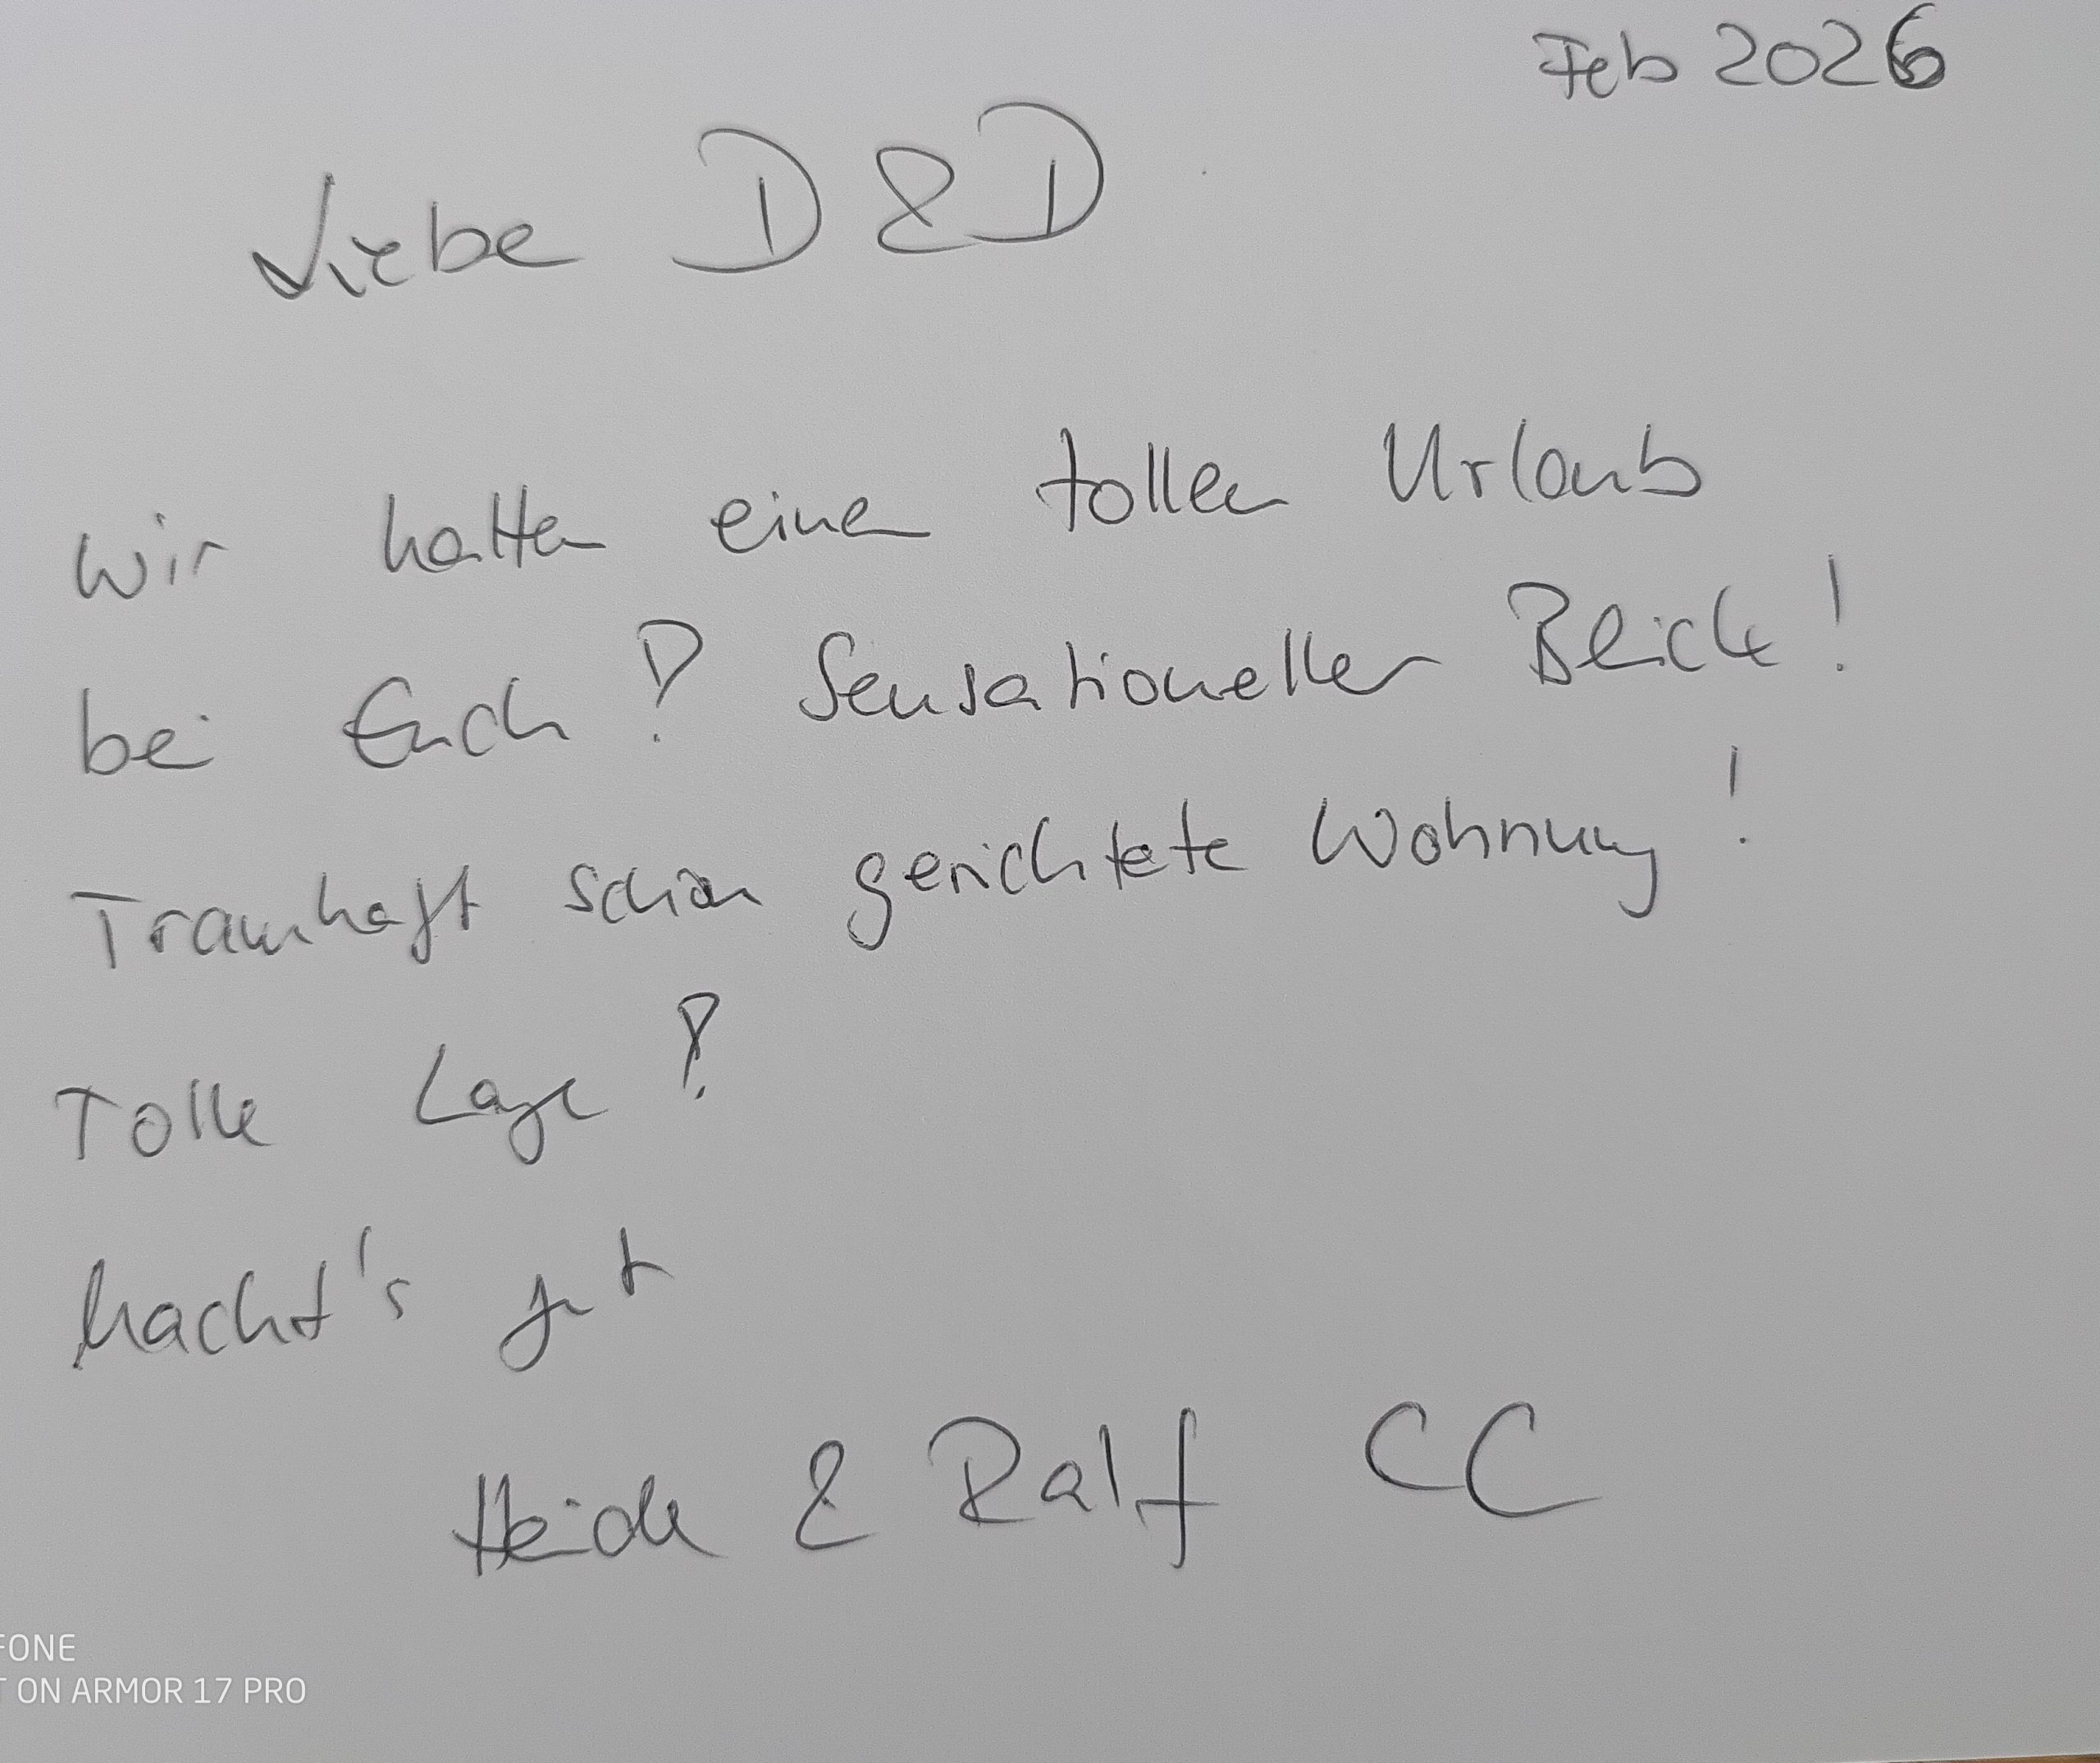 Feb 2026
Liebe D & D
Wir hatten einen tollen Urlaub
bei Euch! Sensationeller Blick!
Traumhaft schön gerichtete Wohnung!
Tolle Lage!
Macht's gut
Heide & Ralf CC
FONE
T ON ARMOR 17 PRO